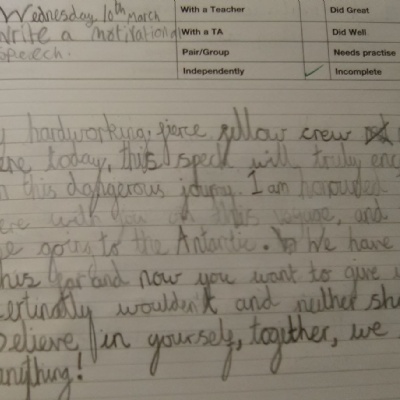 Wednesday 10th March
Write a motivational
speech.
With a Teacher Did Great
With a TA Did Well
Pair/Group Needs practise
Independently ✓ Incomplete
hardworking, fierce fellow crew
today, this speck will truly
this dangerous journy. I am honouded
with you on this voyage, and
going to the Antartic. We have
this far and now you want to give
certinatly wouldn't and neither
believe in yourself, together, we
anything!